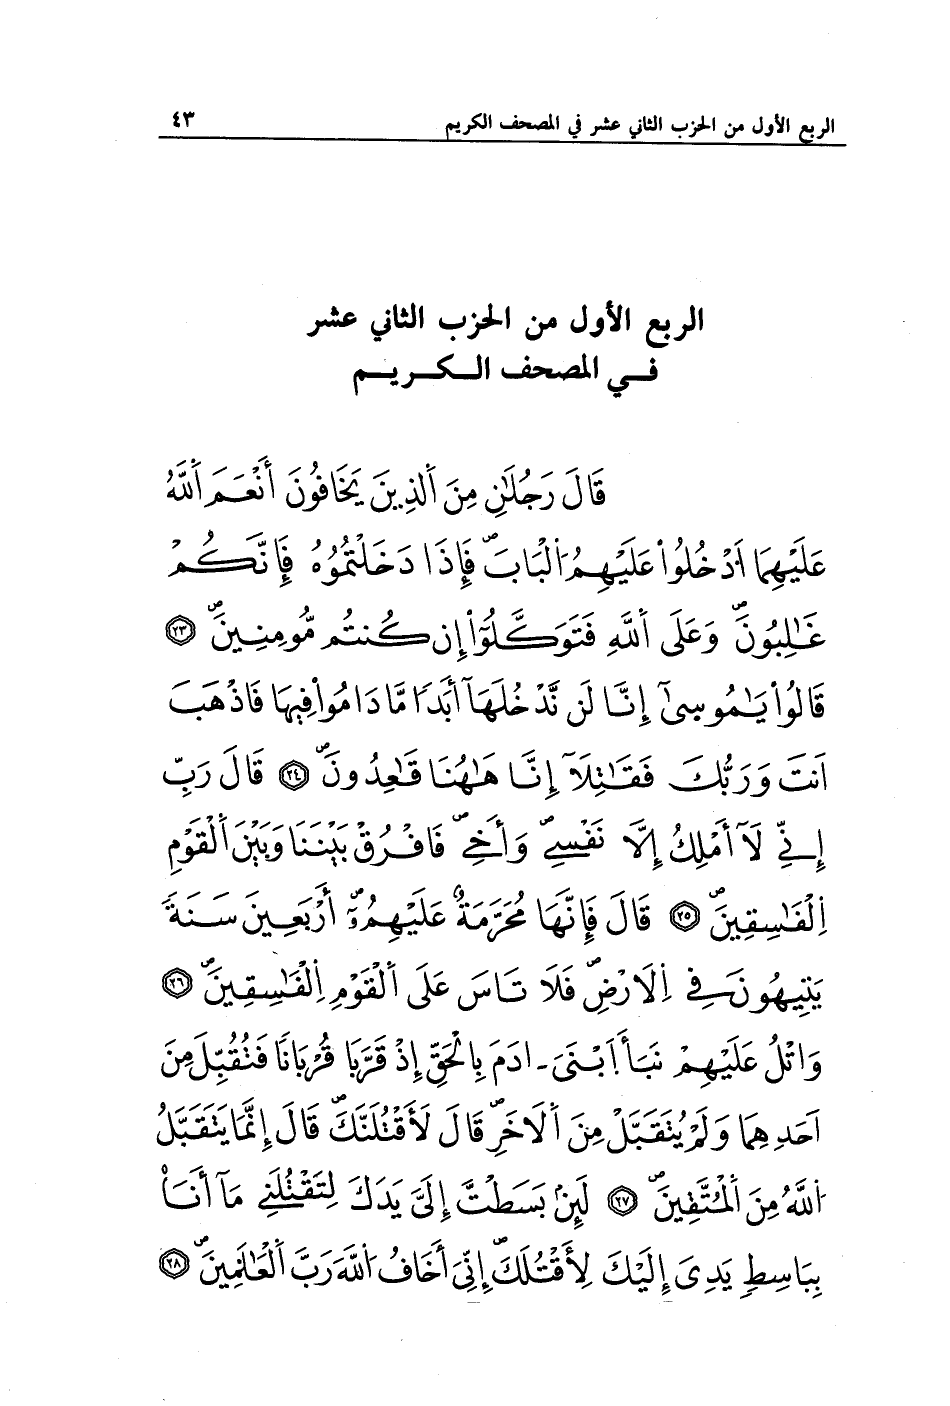 الربع الأول من الحزب الثاني عشر في المصحف الكريم ٤٣
الربع الأول من الحزب الثاني عشر
فـي المصحف الـكـريـم
قَالَ رَجُلَٰنِ مِنَ اَ۬لذِينَ يَخَافُونَ أَنْعَمَ اَ۬للَّهُ
عَلَيْهِمَا اَ۟دْخُلُواْ عَلَيْهِمُ اُ۬لْبَابَۖ فَإِذَا دَخَلْتُمُوهُ فَإِنَّكُمْ
غَٰلِبُونَۖ وَعَلَى اَ۬للَّهِ فَتَوَكَّلُوٓاْ إِن كُنتُم مُّومِنِينَۖ ٢٣
قَالُواْ يَٰمُوسِىٰٓ إِنَّا لَن نَّدْخُلَهَآ أَبَدٗا مَّا دَامُواْ فِيهَا فَاذْهَبَ
اَنتَ وَرَبُّكَ فَقَٰتِلَآ إِنَّا هَٰهُنَا قَٰعِدُونَۖ ٢٤ قَالَ رَبِّ
إِنِّے لَآ أَمْلِكُ إِلَّا نَفْسِےۖ وَأَخِےۖ فَافْرُقْ بَيْنَنَا وَبَيْنَ اَ۬لْقَوْمِ
اِ۬لْفَٰسِقِينَۖ ٢٥ قَالَ فَإِنَّهَا مُحَرَّمَةٌ عَلَيْهِمُۥٓۖ أَرْبَعِينَ سَنَةٗ
يَتِيهُونَ فِے اِ۬لَارْضِۖ فَلَا تَاسَ عَلَى اَ۬لْقَوْمِ اِ۬لْفَٰسِقِينَۖ ٢٦
وَاتْلُ عَلَيْهِمْ نَبَأَ اَ۪بْنَىَ ـ ادَمَ بِالْحَقِّ إِذْ قَرَّبَا قُرْبَانٗا فَتُقُبِّلَ مِنَ
اَحَدِهِمَا وَلَمْ يُتَقَبَّلْ مِنَ اَ۬لَاخَرِۖ قَالَ لَأَقْتُلَنَّكَۖ قَالَ إِنَّمَا يَتَقَبَّلُ
اُ۬للَّهُ مِنَ اَ۬لْمُتَّقِينَۖ ٢٧ لَئِنۢ بَسَطتَّ إِلَىَّ يَدَكَ لِتَقْتُلَنِے مَآ أَنَا۠
بِبَاسِطٖ يَدِىَ إِلَيْكَ لِأَقْتُلَكَۖ إِنِّىَ أَخَافُ اُ۬للَّهَ رَبَّ اَ۬لْعَٰلَمِينَۖ ٢٨